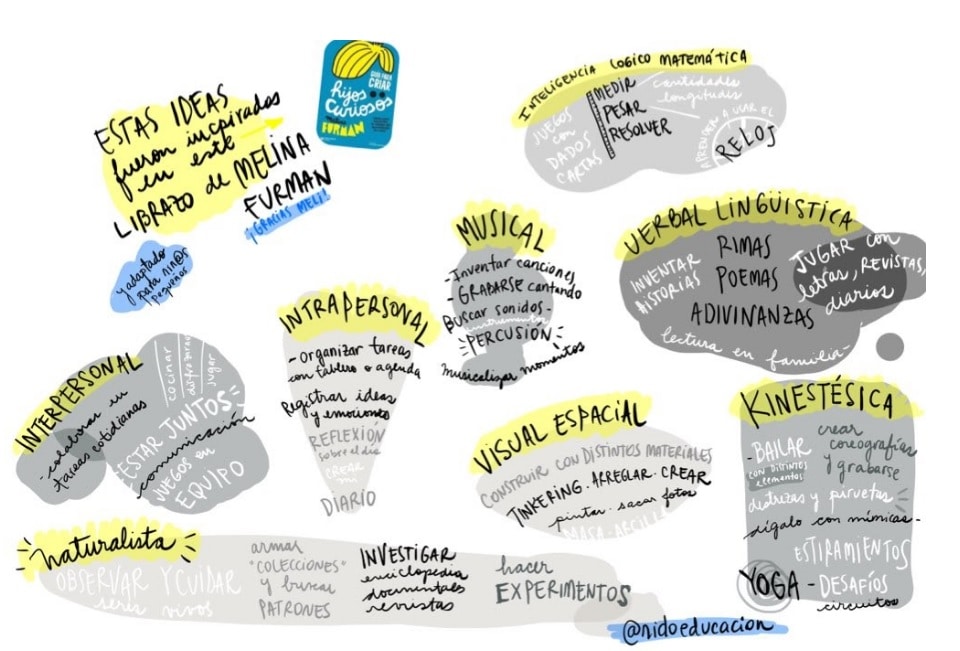 ESTAS IDEAS
fueron inspirados
en este
LIBRAZO de MELINA
FURMAN
¡GRACIAS MELI!
GUÍA PARA
CRIAR
hijos
curiosos
FURMAN
y adaptado
para niñ@s
pequeños
INTELIGENCIA LOGICO MATEMÁTICA
JUEGOS
con
DADOS
CARTAS
MEDIR
PESAR
RESOLVER
cantidades
longitudes
APRENDER A USAR EL
RELOJ
MUSICAL
-Inventar canciones
-GRABARSE cantando
Buscar sonidos-
instrumentos
PERCUSIÓN
musicalizar momentos
VERBAL LINGÜISTICA
INVENTAR
HISTORIAS
RIMAS
POEMAS
ADIVINANZAS
JUGAR con
letras, REVISTAS,
diarios
lectura en familia-
INTRAPERSONAL
-organizar tareas
con tablero o agenda
Registrar ideas
y emociones
REFLEXIÓN
sobre el día
CREAR
mi
DIARIO
INTERPERSONAL
-colaborar en
tareas cotidianas
cocinar
disfrazarse
jugar
ESTAR JUNTOS
comunicación
JUEGOS en
EQUIPO
VISUAL ESPACIAL
CONSTRUIR CON DISTINTOS MATERIALES
TINKERING. ARREGLAR. CREAR
pintar. sacar fotos
MASA-ARCILLA
KINESTÉSICA
-BAILAR
con DISTINTOS
elementos
crear
coreografías
y grabarse
destrezas y piruetas
dígalo con mímicas-
ESTIRAMIENTOS
YOGA - DESAFÍOS
circuitos
naturalista
OBSERVAR Y CUIDAR
seres vivos
armar
"COLECCIONES"
y buscar
PATRONES
INVESTIGAR
enciclopedia
documentales
revistas
hacer
EXPERIMENTOS
@nidoeducacion